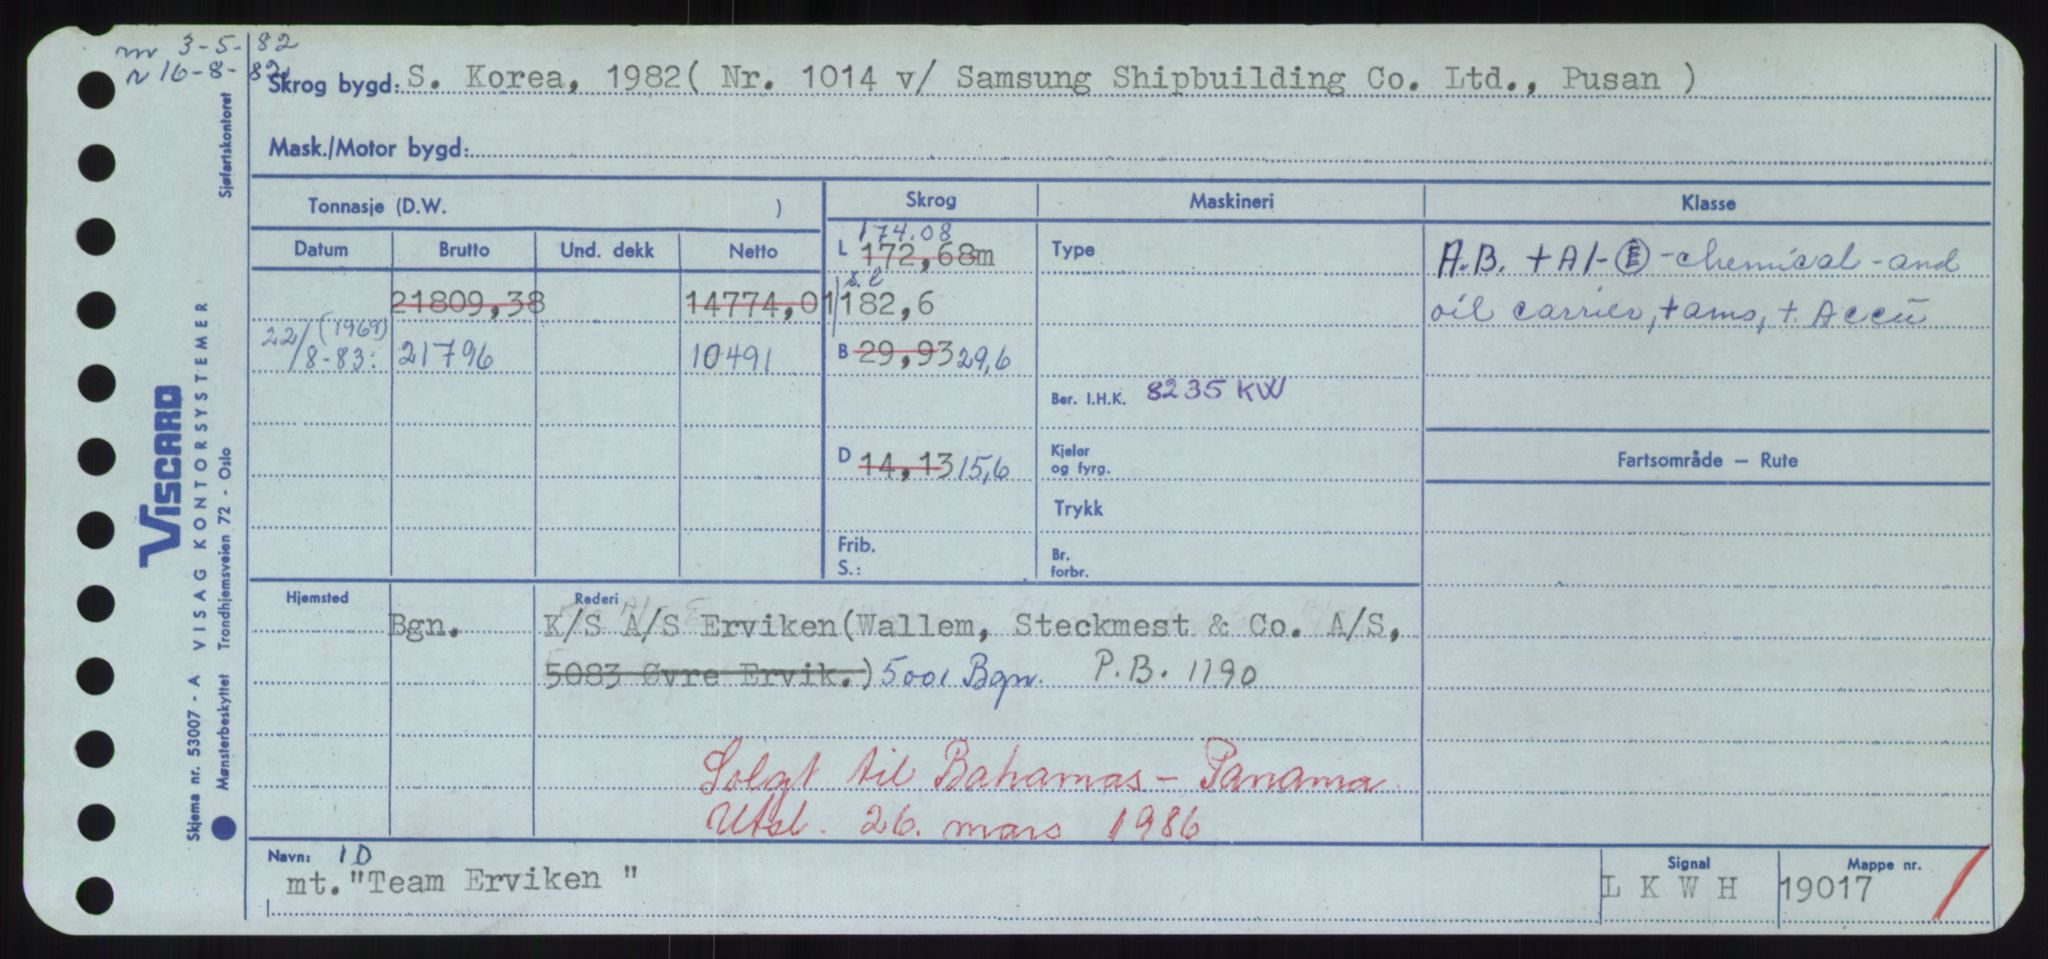 nr 3-5-82
n 16-8-82
Skrog bygd: S. Korea, 1982( Nr. 1014 v/ Samsung Shipbuilding Co. Ltd., Pusan )
Mask./Motor bygd:
Tonnasje (D.W. )
Skrog
Maskineri
Klasse
Datum Brutto Und. dekk Netto
174.08
L 172,68m
Type
A.B. + A1-Ⓔ-chemical-and
s.l
21809,38 14774,01 182,6
oil carrier, + ams, + Accu
22/8-83: (1969) 21796 10491
B 29,93 29,6
Ber. I.H.K. 8235 KW
D 14,13 15,6
Kjeler
og fyrg.
Fartsområde – Rute
Trykk
Frib.
S.:
Br.
forbr.
Hjemsted
Rederi
Bgn. K/S A/S Erviken(Wallem, Steckmest & Co. A/S,
5083 Øvre Ervik.) 5001 Bgn. P.B. 1190
Solgt til Bahamas - Panama
Utsl. 26. mars 1986
Navn: ID
mt."Team Erviken "
Signal
L K W H
Mappe nr.
19017
Sjøfartskontoret
VISCARD
VISAG KONTORSYSTEMER
Skjema nr. 53007 - A
Mønsterbeskyttet Trondhjemsveien 72 - Oslo